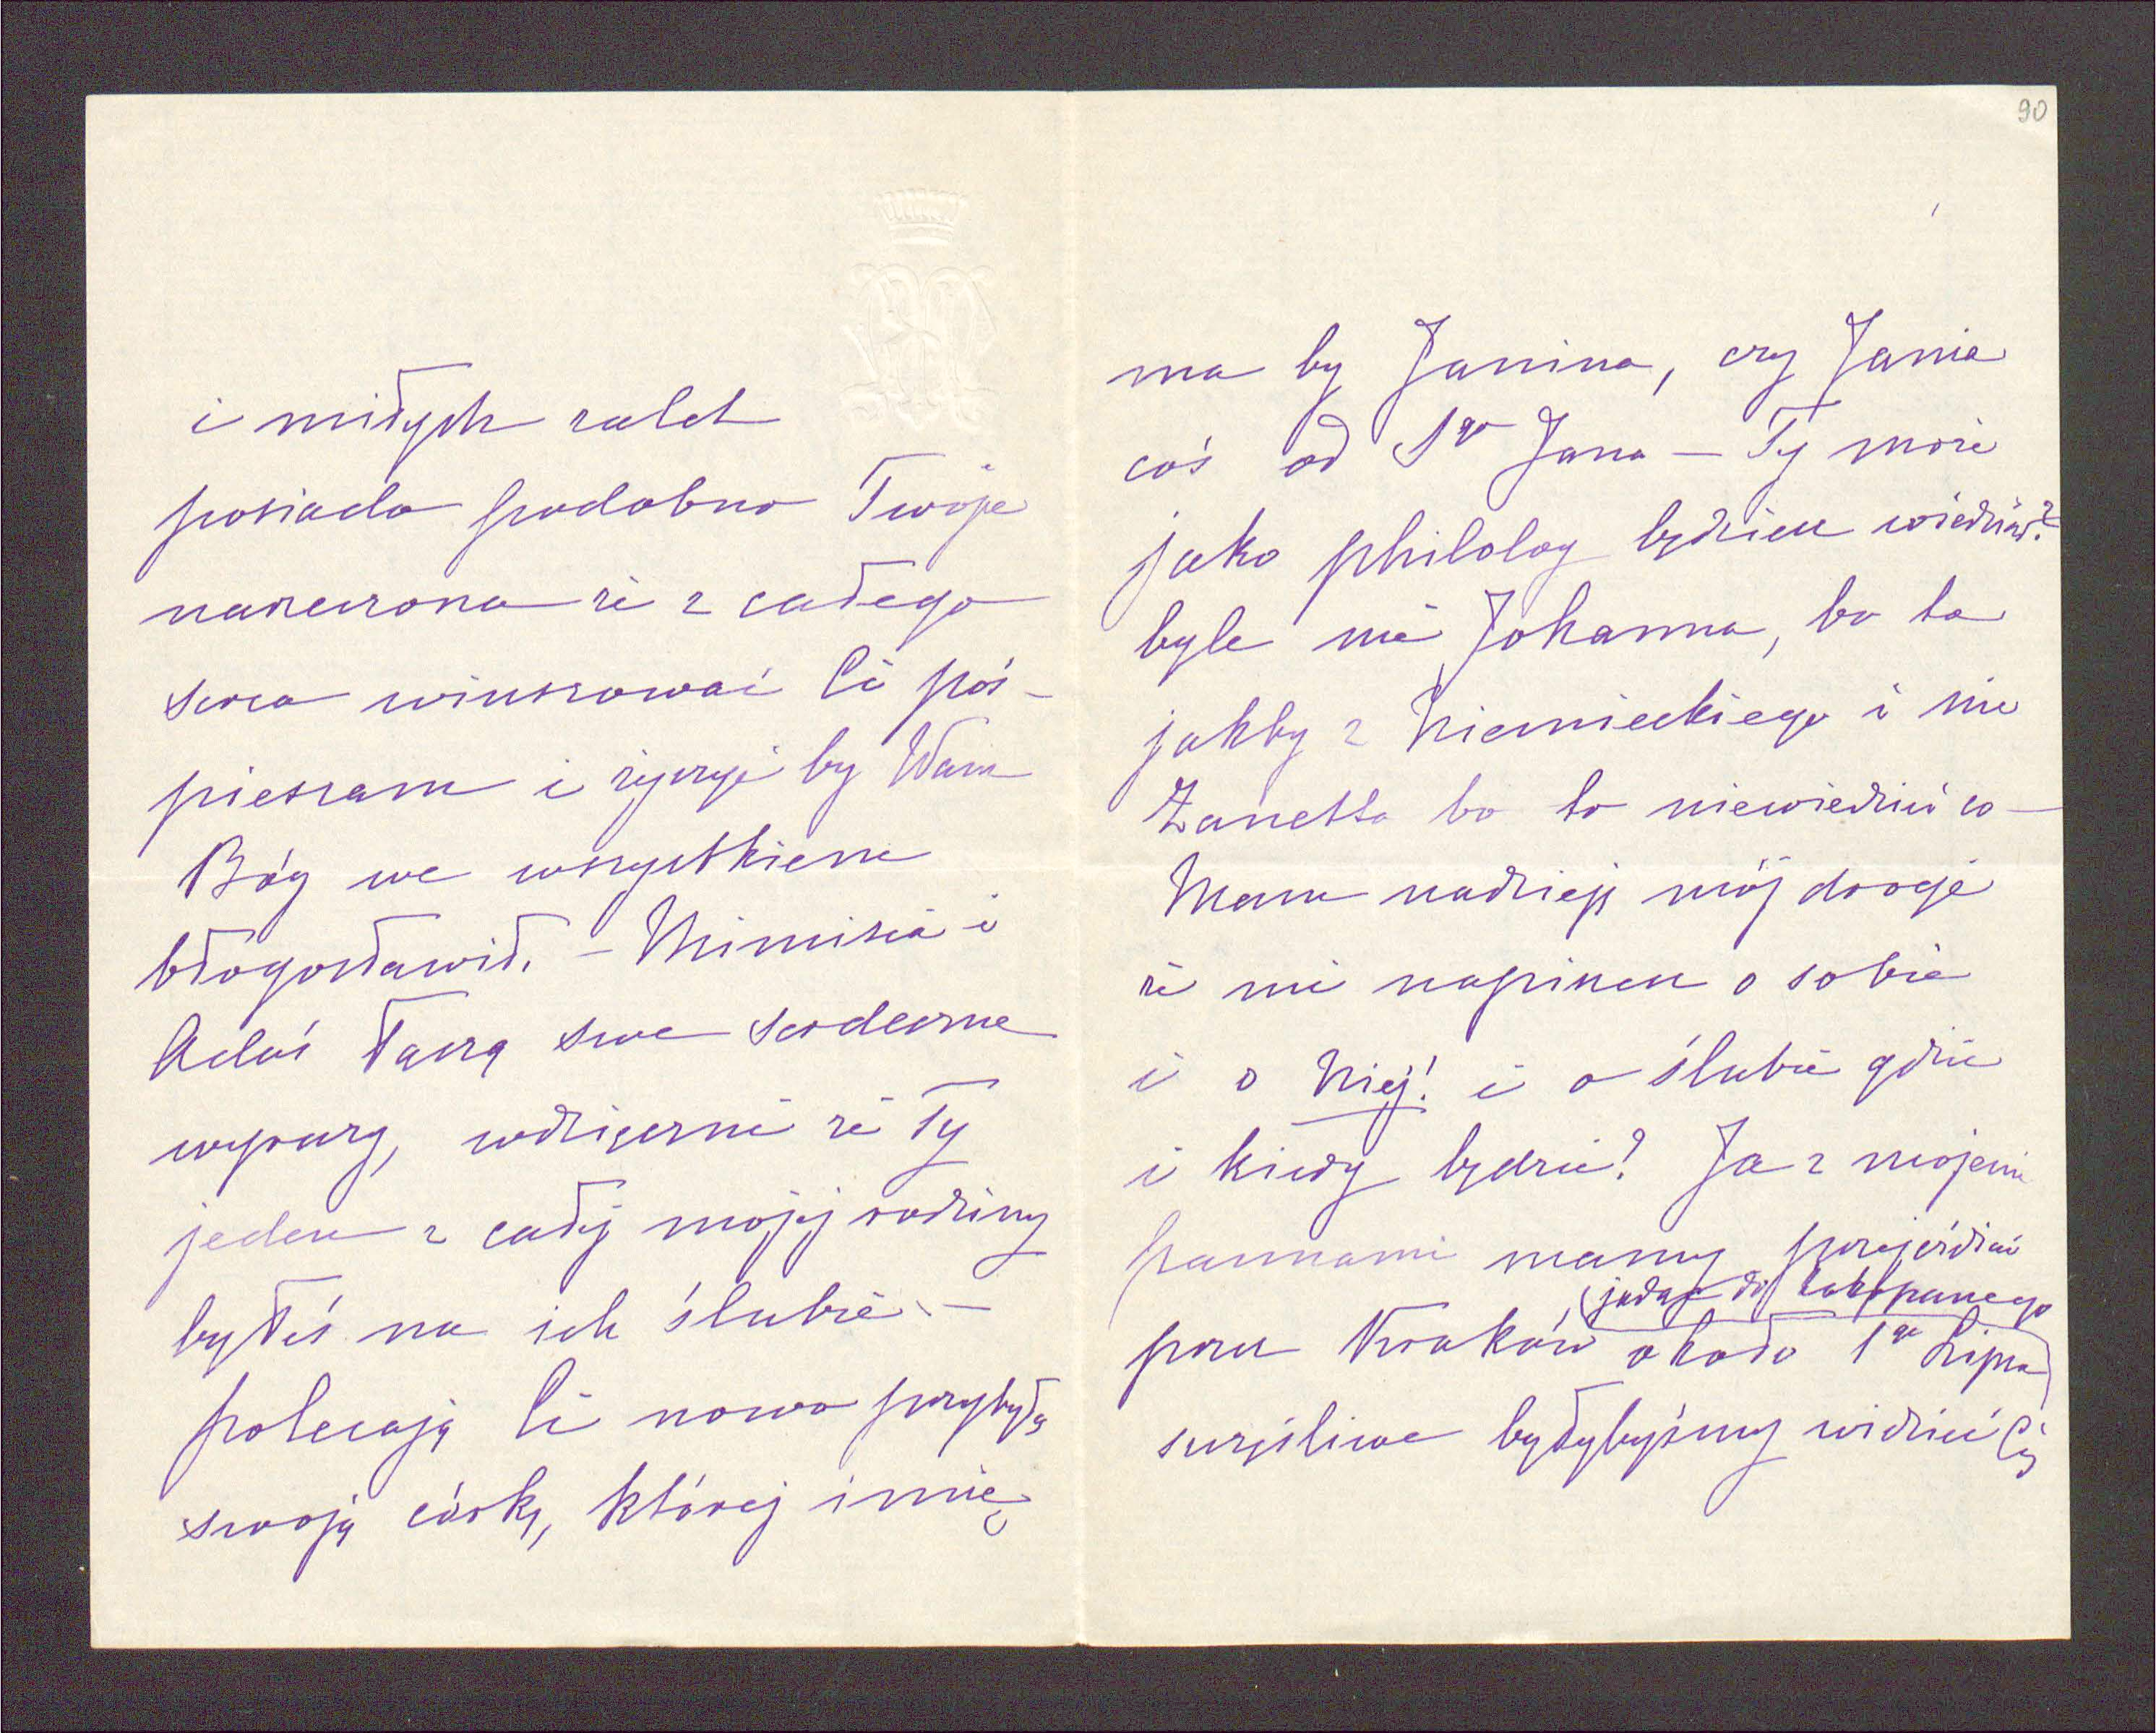 i miłych zalet
posiada podobno Twoja
narzeczona że z całego
serca winszować Ci poś-
pieszam i życzę by Wam
Bóg we wszystkiem
błogosławił. – Mimisia i
Adaś łączą swe serdeczne
wyrazy, wdzięczni że Ty
jeden z całej mojej rodziny
byłeś na ich ślubie. –
polecają Ci nowo przybyłą
swoją córkę, której imię
90
ma by Janina, czy Jania
coś od Sgo Jana – Ty może
jako philolog będziesz wiedział?
byle nie Johanna, bo to
jakby z Niemieckiego i nie
Żanetta bo to niewiedzieć co –
Mam nadzieję mój drogi
że mi napiszesz o sobie
i o Niej! i o ślubie gdzie
i kiedy będzie? Ja z mojemi
pannami mamy przejeżdżać
(jadąc do Zakopanego
przez Kraków około 1go Lipca)
szczęśliwe byłybyśmy widzieć Cię